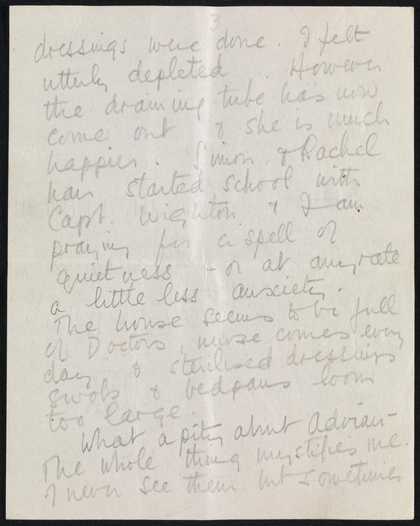 3
dressings were done. I felt
utterly depleted. However
the draining tube has now
come out & she is much
happier. Simon & Rachel
have started school with
Capt. Wighton & I am
praying for a spell of
quietness - or at any rate
a little less anxiety.
The house seems to be full
of Doctors, nurse comes every
day & sterilised dressings
swobs & bedpans loom
too large.
What a pity about Adrian -
The whole thing mystifies me.
I never see them but sometimes